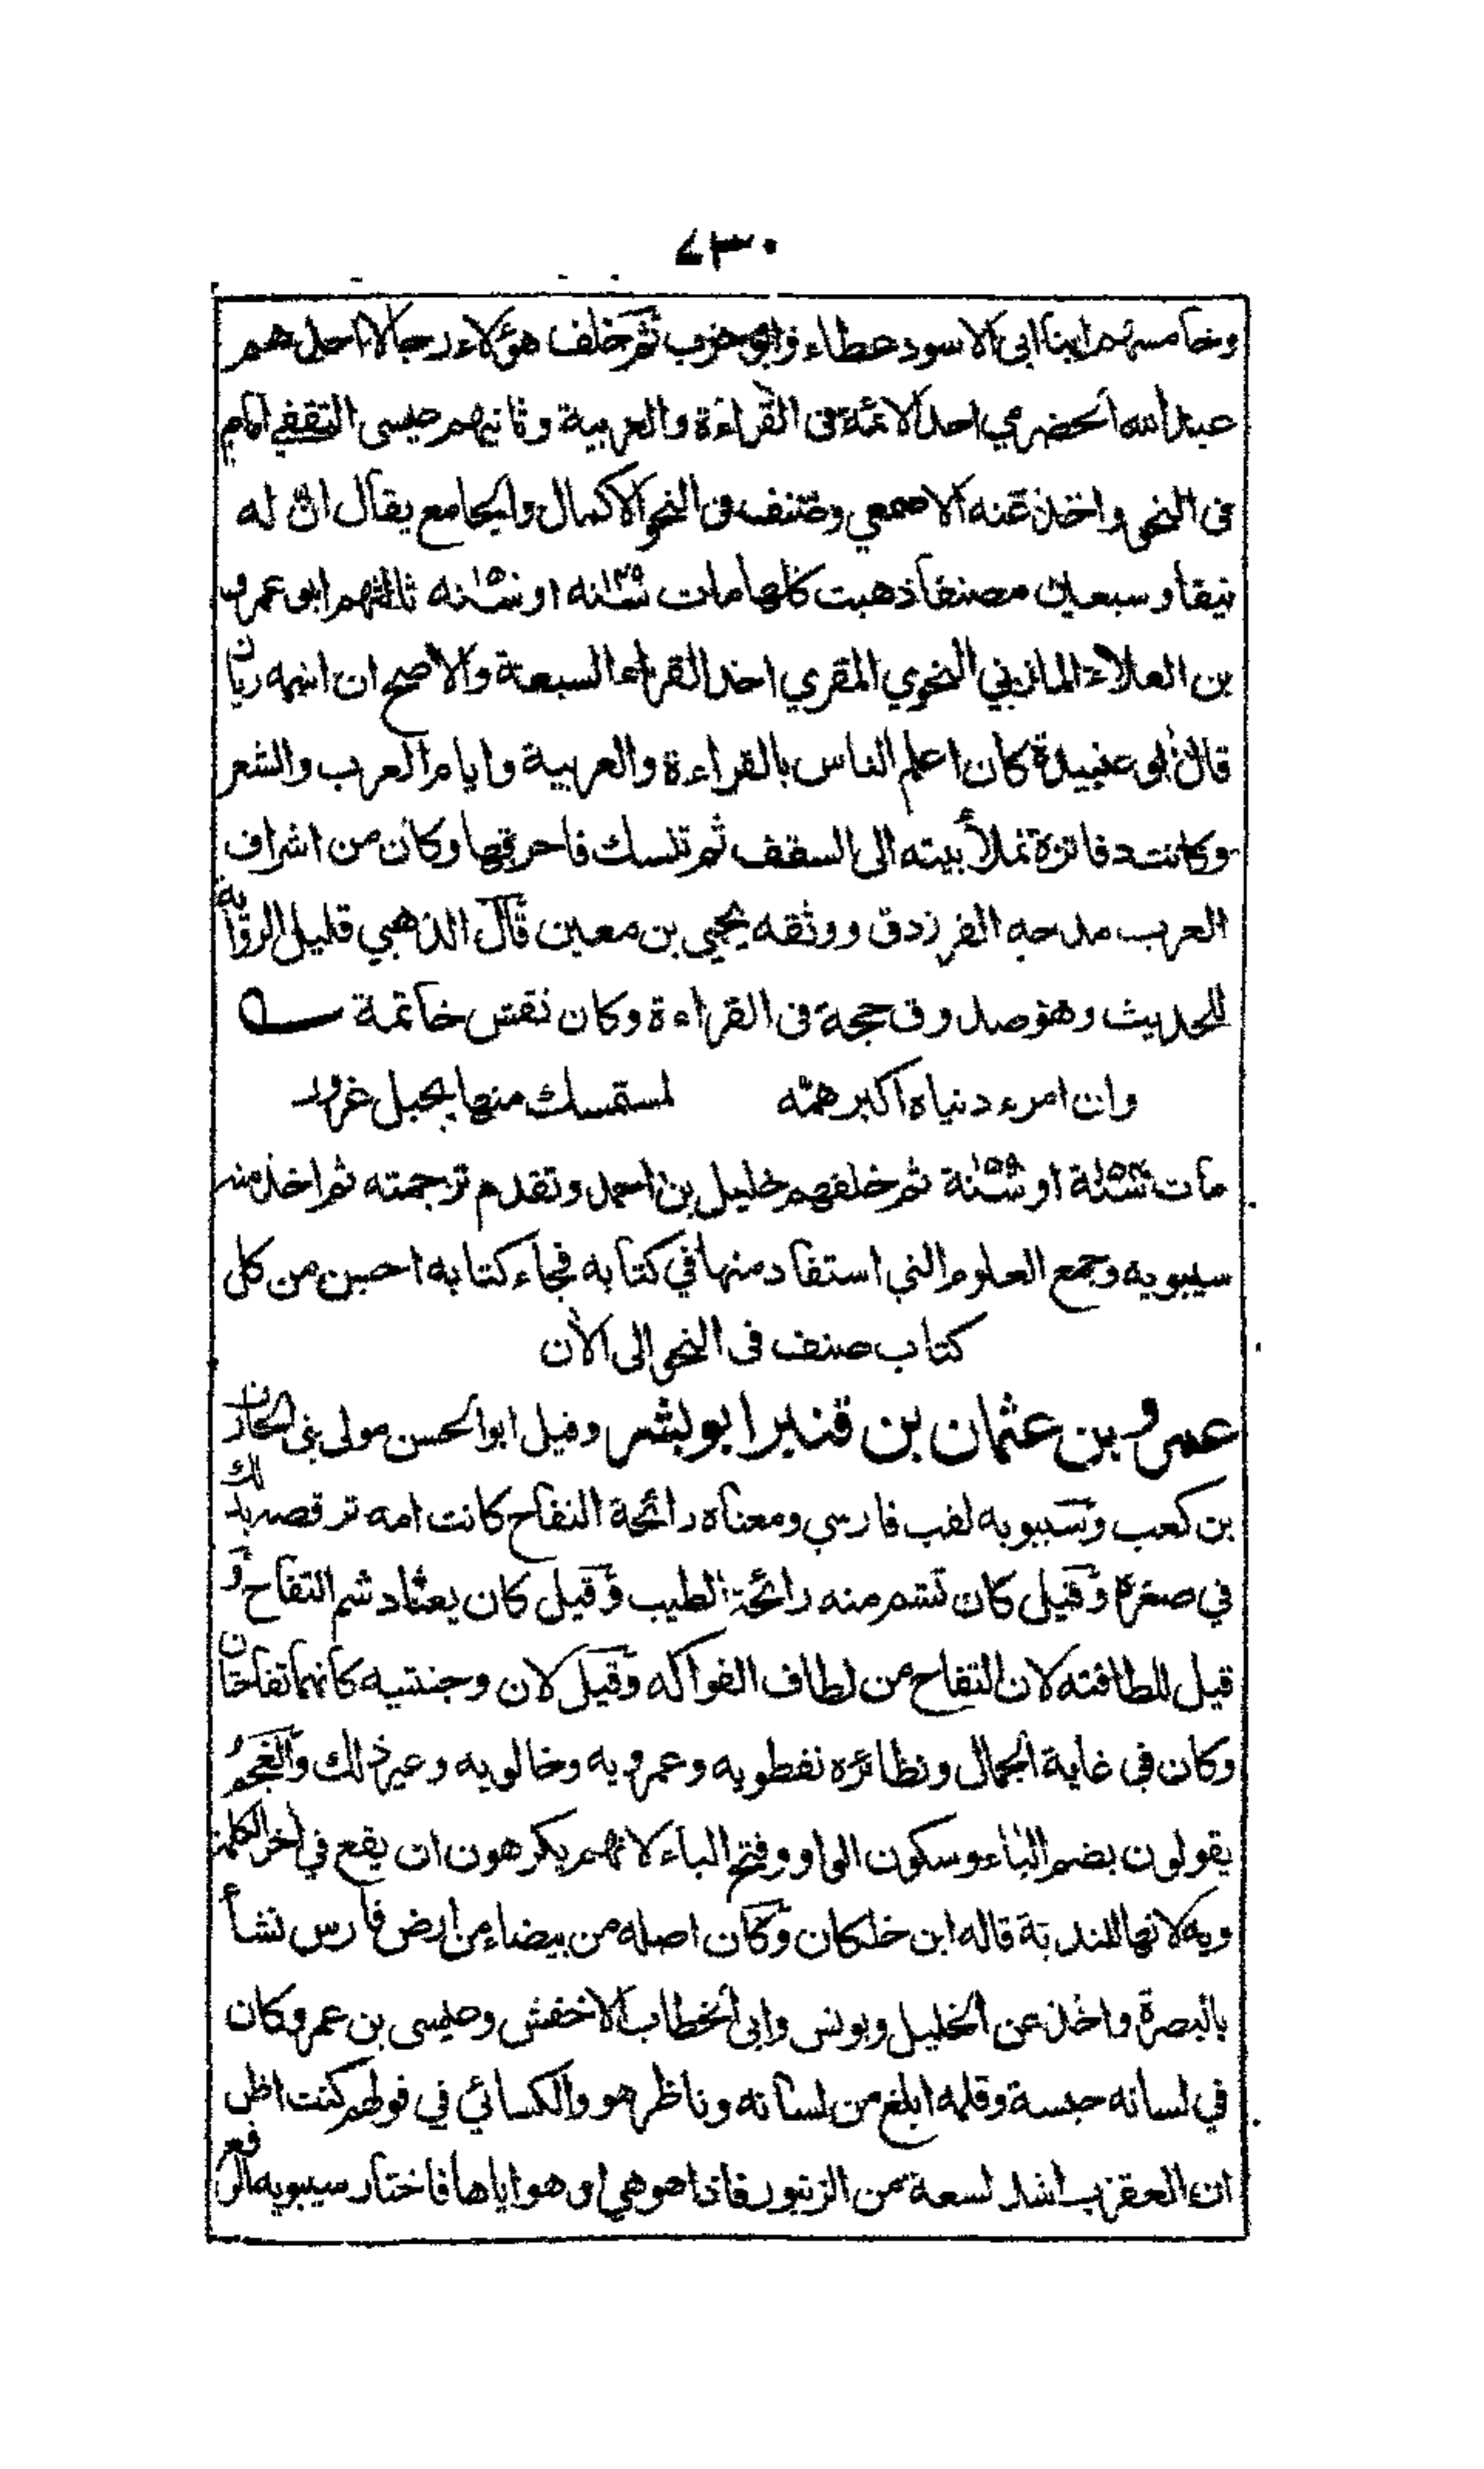 ٧٣٠
وخامسهم ابنا ابى الاسود عطاء وابو حرب ثم خلف هؤلاء رجالا احدهم
عبد الله الحضرمي احد الائمة فى القراءة والعربية وثانيهم عيسى الثقفي امام
فى النحو واخذ عنه الاصمعي وصنف فى النحو الاكمال والجامع يقال ان له
نيفا وسبعين مصنفا ذهبت كلها مات سنة ١٤٩ او سنة ١٥٠ ثالثهم ابو عمرو
بن العلاء المازني النحوي المقري احد القراء السبعة والاصح ان اسمه زبان
قال ابو عبيدة كان اعلم الناس بالقراءة والعربية وايام العرب والشعر
وكانت دفاتره تملأ بيته الى السقف ثم تنسك فاحرقها وكان من اشراف
العرب مدحه الفرزدق ووثقه يحيى بن معين قال الذهبي قليل الرواية
للحديث وهو صدوق حجة فى القراءة وكان نقش خاتمة
وان امرء دنياه اكبر همه لمستمسك منها بحبل غرور
مات سنة ١٥٤ او سنة ١٥٩ ثم خلفهم خليل بن احمد وتقدم ترجمته ثم اخذ منه
سيبويه وجمع العلوم التي استفاد منها في كتابه فجاء كتابه احسن من كل
كتاب صنف فى النحو الى الآن
عمرو بن عثمان بن قنبر ابو بشر وقيل ابو الحسن مولى بنى الحارث
بن كعب وسيبويه لقب فارسي ومعناه رائحة التفاح كانت امه ترقصه بذلك
في صغره وقيل كان تشم منه رائحة الطيب وقيل كان يعتاد شم التفاح و
قيل للطافته لان التفاح من لطاف الفواكه وقيل لان وجنتيه كانهما تفاحتان
وكان فى غاية الجمال ونظائره نفطويه وعمرويه وخالويه وغير ذلك والعجم
يقولون بضم الباء وسكون الواو وفتح الياء لانهم يكرهون ان يقع في آخر الكلمة
ويه لانها للندبة قاله ابن خلكان وكان اصله من بيضاء من ارض فارس نشأ
بالبصرة واخذ عن الخليل ويونس وابى الخطاب الاخفش وعيسى بن عمر وكان
في لسانه حبسة وقلمه ابلغ من لسانه وناظر هو والكسائي في قولهم كنت اظن
ان العقرب اشد لسعة من الزنبور فاذا هو هي او هو اياها فاختار سيبويه الرفع